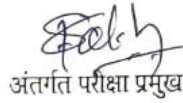 अंतर्गत परीक्षा प्रमुख